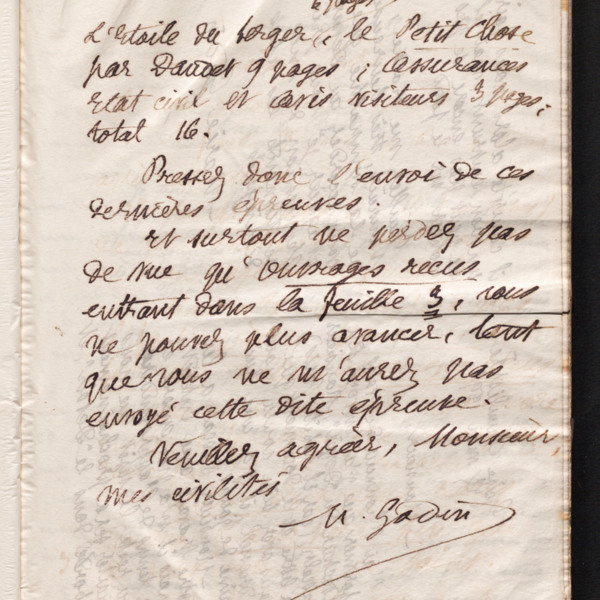 pages
L'étoile du berger, le Petit Chose
par Daudet 9 pages ; assurances
Etat civil et avis visiteurs 3 pages ;
total 16.
Pressez donc l'envoi de ces
dernières épreuves.
Et surtout ne perdez pas
de vue qu'ouvrages reçus
entrant dans la feuille 3, vous
ne pouvez plus avancer, tant
que vous ne m'aurez pas
envoyé cette dite épreuve.
Veuillez agréer, Monsieur,
mes civilités
M. Godin